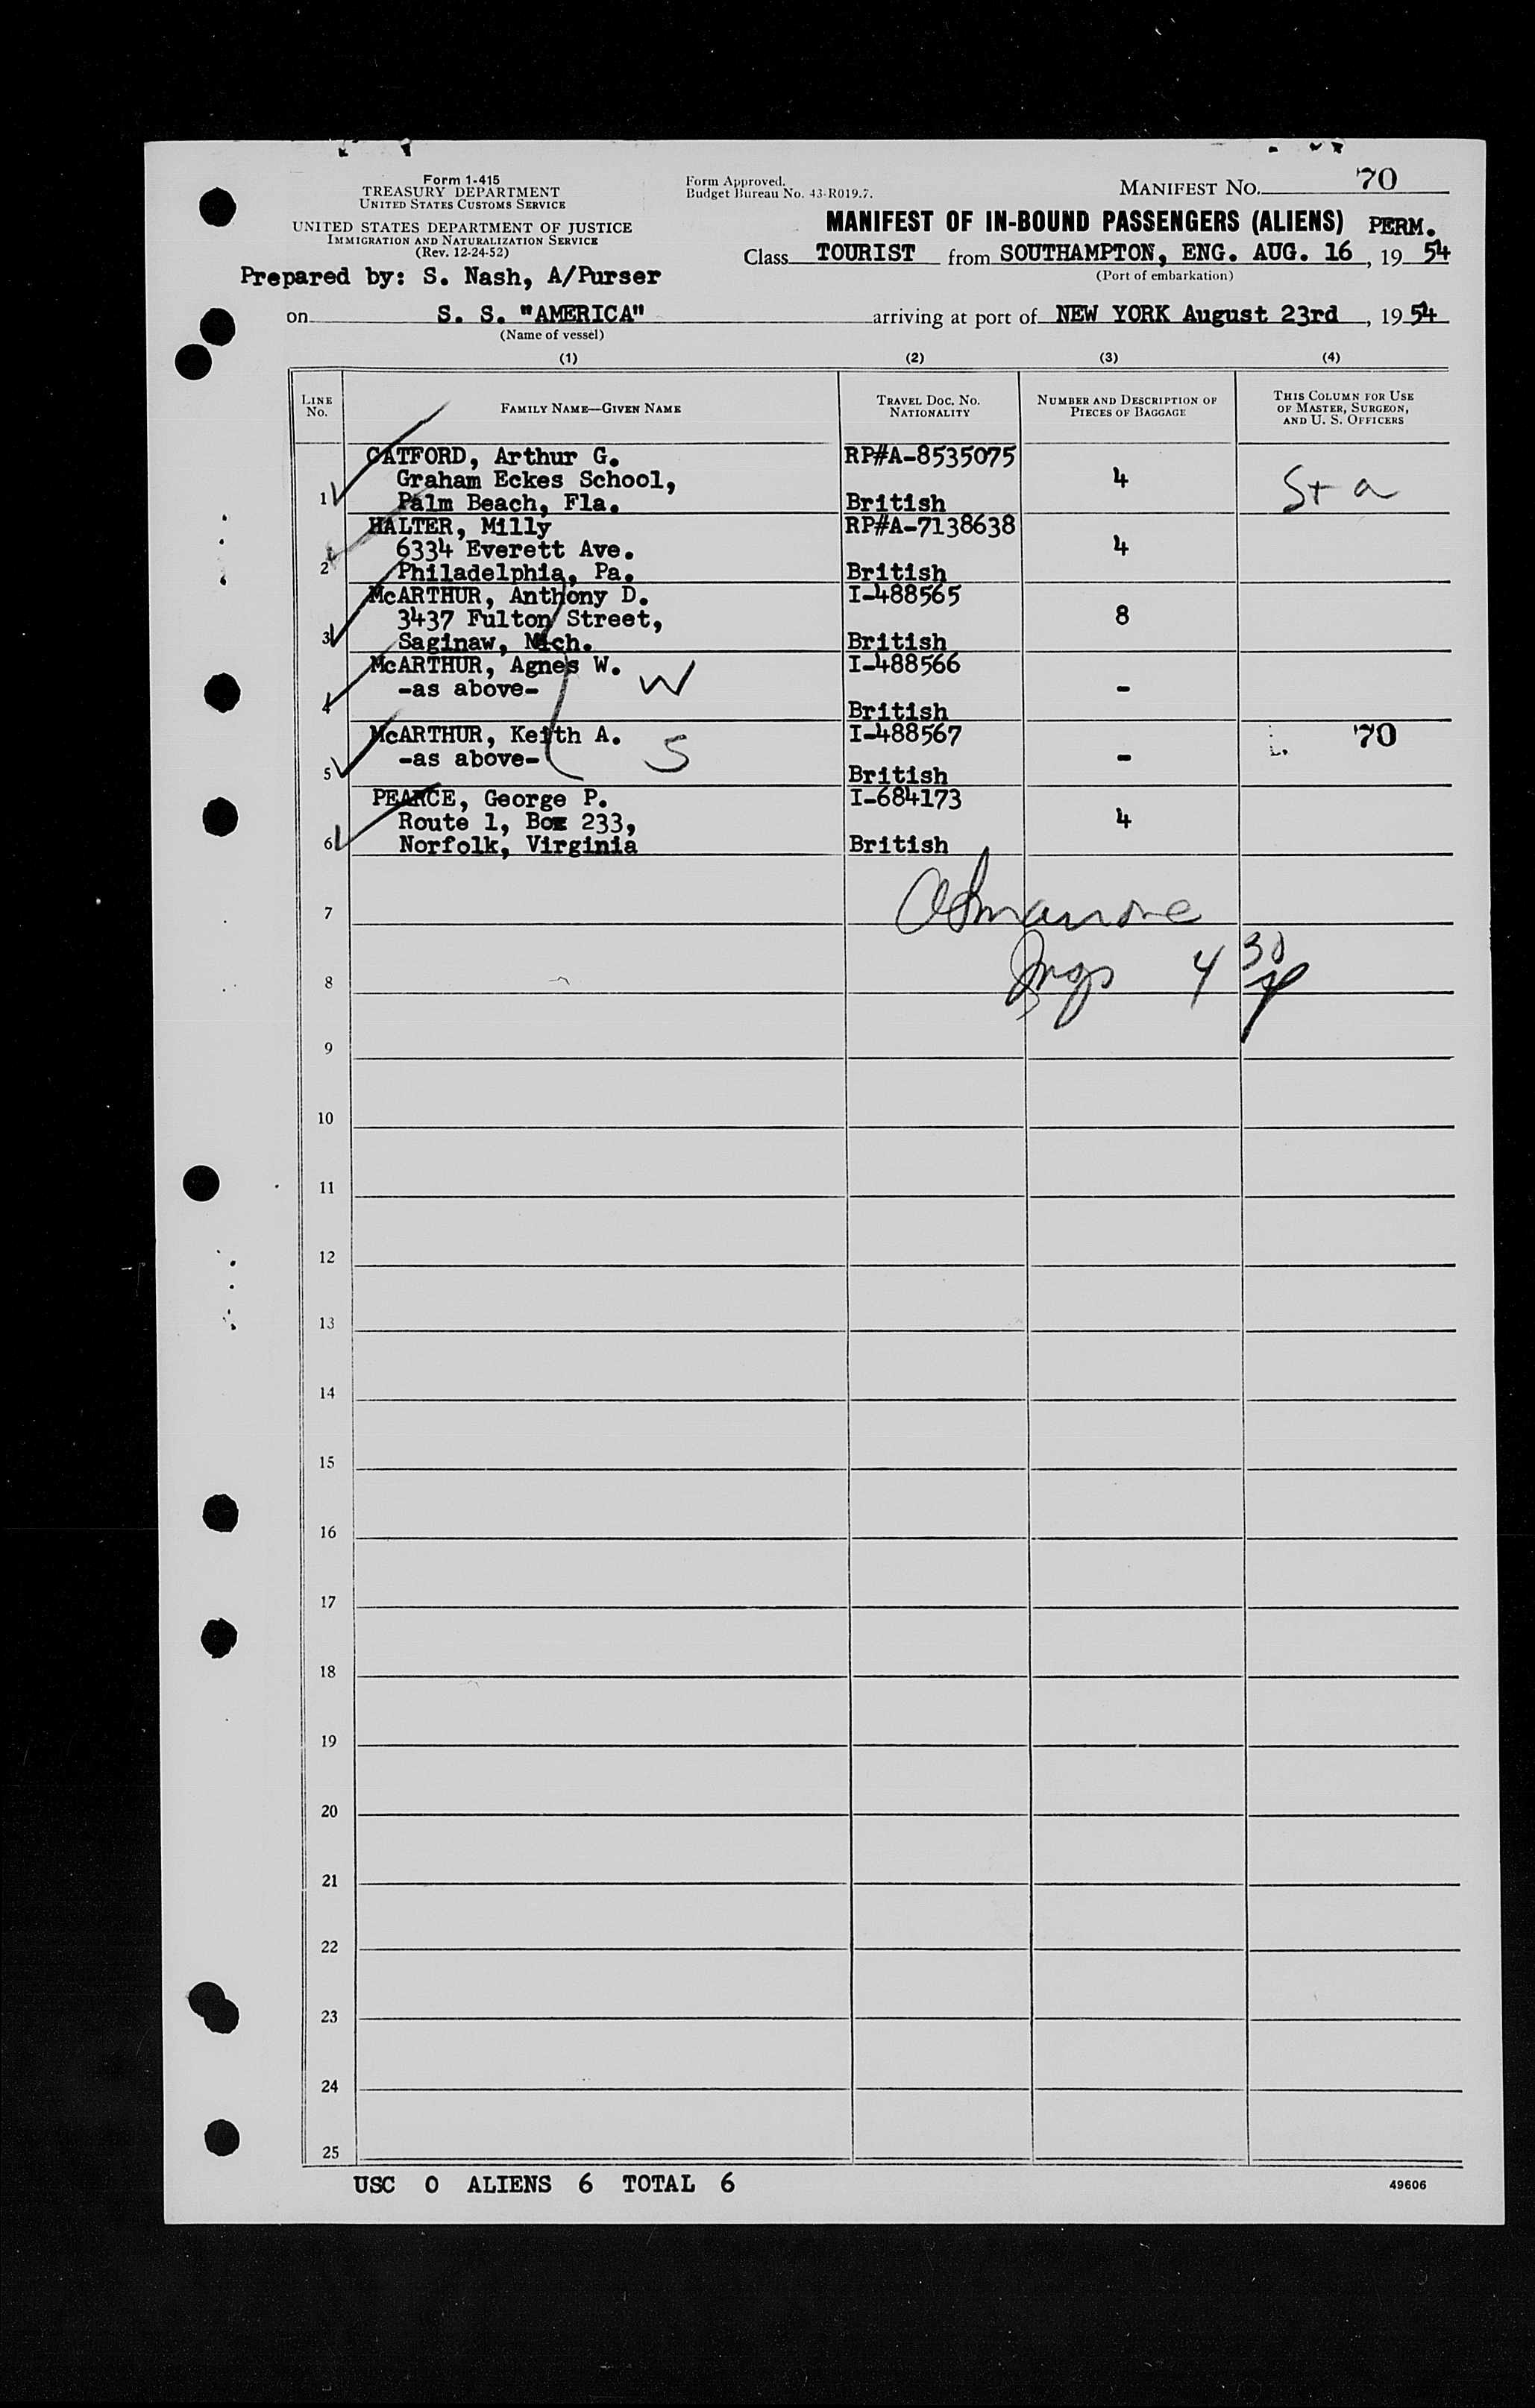 Form 1-415
TREASURY DEPARTMENT
UNITED STATES CUSTOMS SERVICE
UNITED STATES DEPARTMENT OF JUSTICE
IMMIGRATION AND NATURALIZATION SERVICE
(Rev. 12-24-52)
Prepared by: S. Nash, A/Purser
Form Approved.
Budget Bureau No. 43-R019.7.
MANIFEST NO. 70
MANIFEST OF IN-BOUND PASSENGERS (ALIENS) PERM.
Class TOURIST from SOUTHAMPTON, ENG. AUG. 16, 1954
(Port of embarkation)
on S. S. "AMERICA" arriving at port of NEW YORK August 23rd, 1954
(Name of vessel)
(1) (2) (3) (4)
LINE No. FAMILY NAME—GIVEN NAME TRAVEL DOC. NO. NATIONALITY NUMBER AND DESCRIPTION OF PIECES OF BAGGAGE THIS COLUMN FOR USE OF MASTER, SURGEON, AND U. S. OFFICERS
CATFORD, Arthur G. RP#A-8535075
Graham Eckes School, 4 St a
1 Palm Beach, Fla. British
HALTER, Milly RP#A-7138638
6334 Everett Ave. 4
2 Philadelphia, Pa. British
McARTHUR, Anthony D. I-488565
3437 Fulton Street, 8
3 Saginaw, Mich. British
McARTHUR, Agnes W. I-488566
-as above- W -
4 British
McARTHUR, Keith A. I-488567 70
-as above- S -
5 British
PEARCE, George P. I-684173
Route 1, Box 233, 4
6 Norfolk, Virginia British
7
8 4 30
9
10
11
12
13
14
15
16
17
18
19
20
21
22
23
24
25
USC 0 ALIENS 6 TOTAL 6
49606